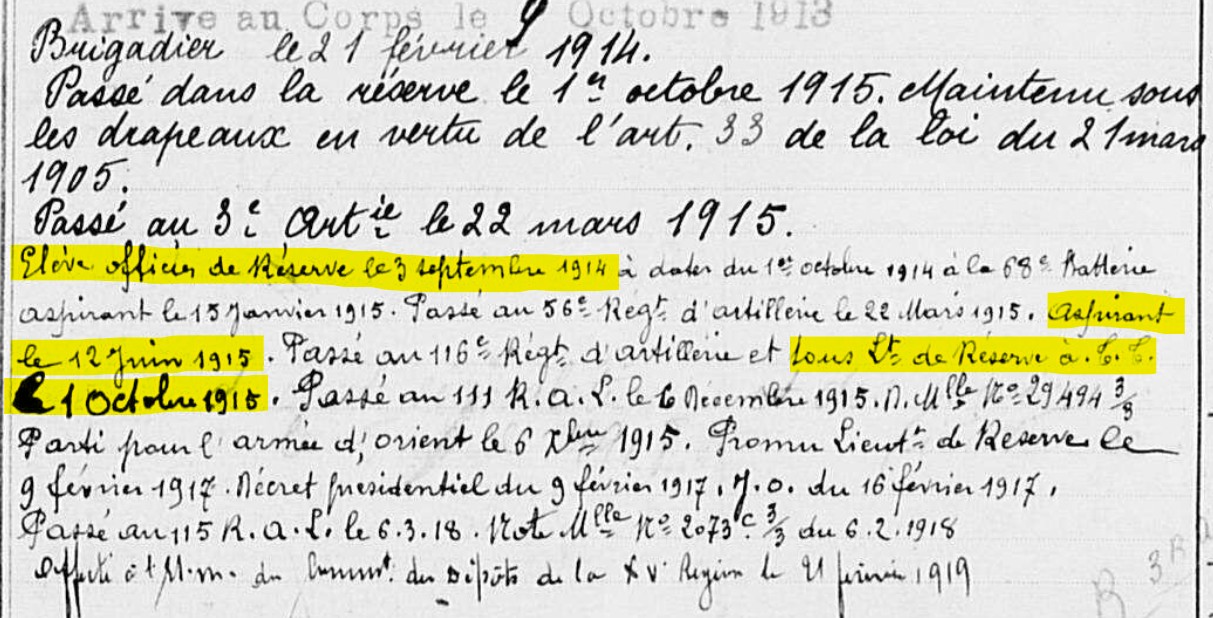 Arrivé au Corps le 9 Octobre 1913
Brigadier le 21 février 1914.
Passé dans la réserve le 1er octobre 1915. Maintenu sous
les drapeaux en vertu de l'art. 33 de la loi du 21 mars
1905.
Passé au 3e Artie le 22 mars 1915.
Elève officier de Réserve le 3 septembre 1914 à dater du 1er octobre 1914 à la 68e Batterie
aspirant le 15 Janvier 1915. Passé au 56e Régt d'artillerie le 22 Mars 1915. Aspirant
le 12 Juin 1915. Passé au 116e Régt d'artillerie et sous Lt de Réserve à. T. T.
le 1 Octobre 1915. Passé au 111 R.a.L. le 6 Décembre 1915. D. Mlle No 29494 3/3
Parti pour l'armée d'orient le 6 Xbre 1915. Promu Lieutt de Réserve le
9 février 1917. Décret présidentiel du 9 février 1917. J.O. du 16 février 1917.
Passé au 115 R.a.L. le 6.3.18. Note Mlle No 2073 c. 3/3 du 6.2.1918
Affecté à l'E.M. du Commt des Dépôts de la XVe Région le 21 février 1919